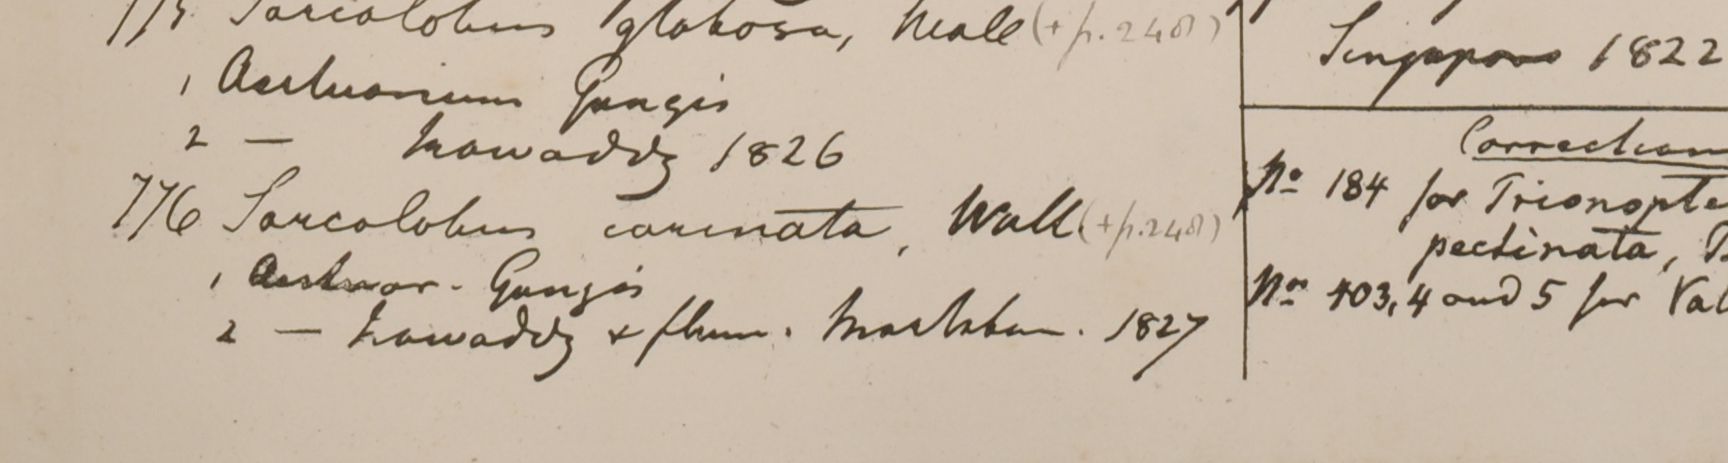 775 Sarcolobus globosa, Wall (+ p. 248)
1 Aestuarium Gangis
2 — Irawaddy 1826
776 Sarcolobus carinata, Wall (+ p. 248)
1 Aestuar. Gangis
2 — Irawaddy & flum. Martaban. 1827
Singapore 1822
Correction
No 184 for Trionopte
pectinata,
Nos 403, 4 and 5 for Val